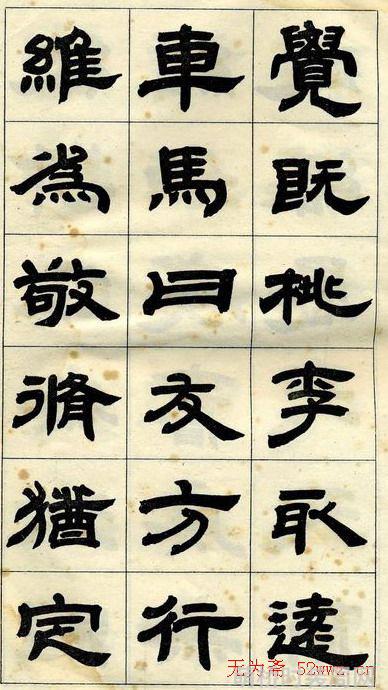 覺既桃李取遠
車馬曰友方行
維為敬脩猶定
无为斋 52wwz.cn